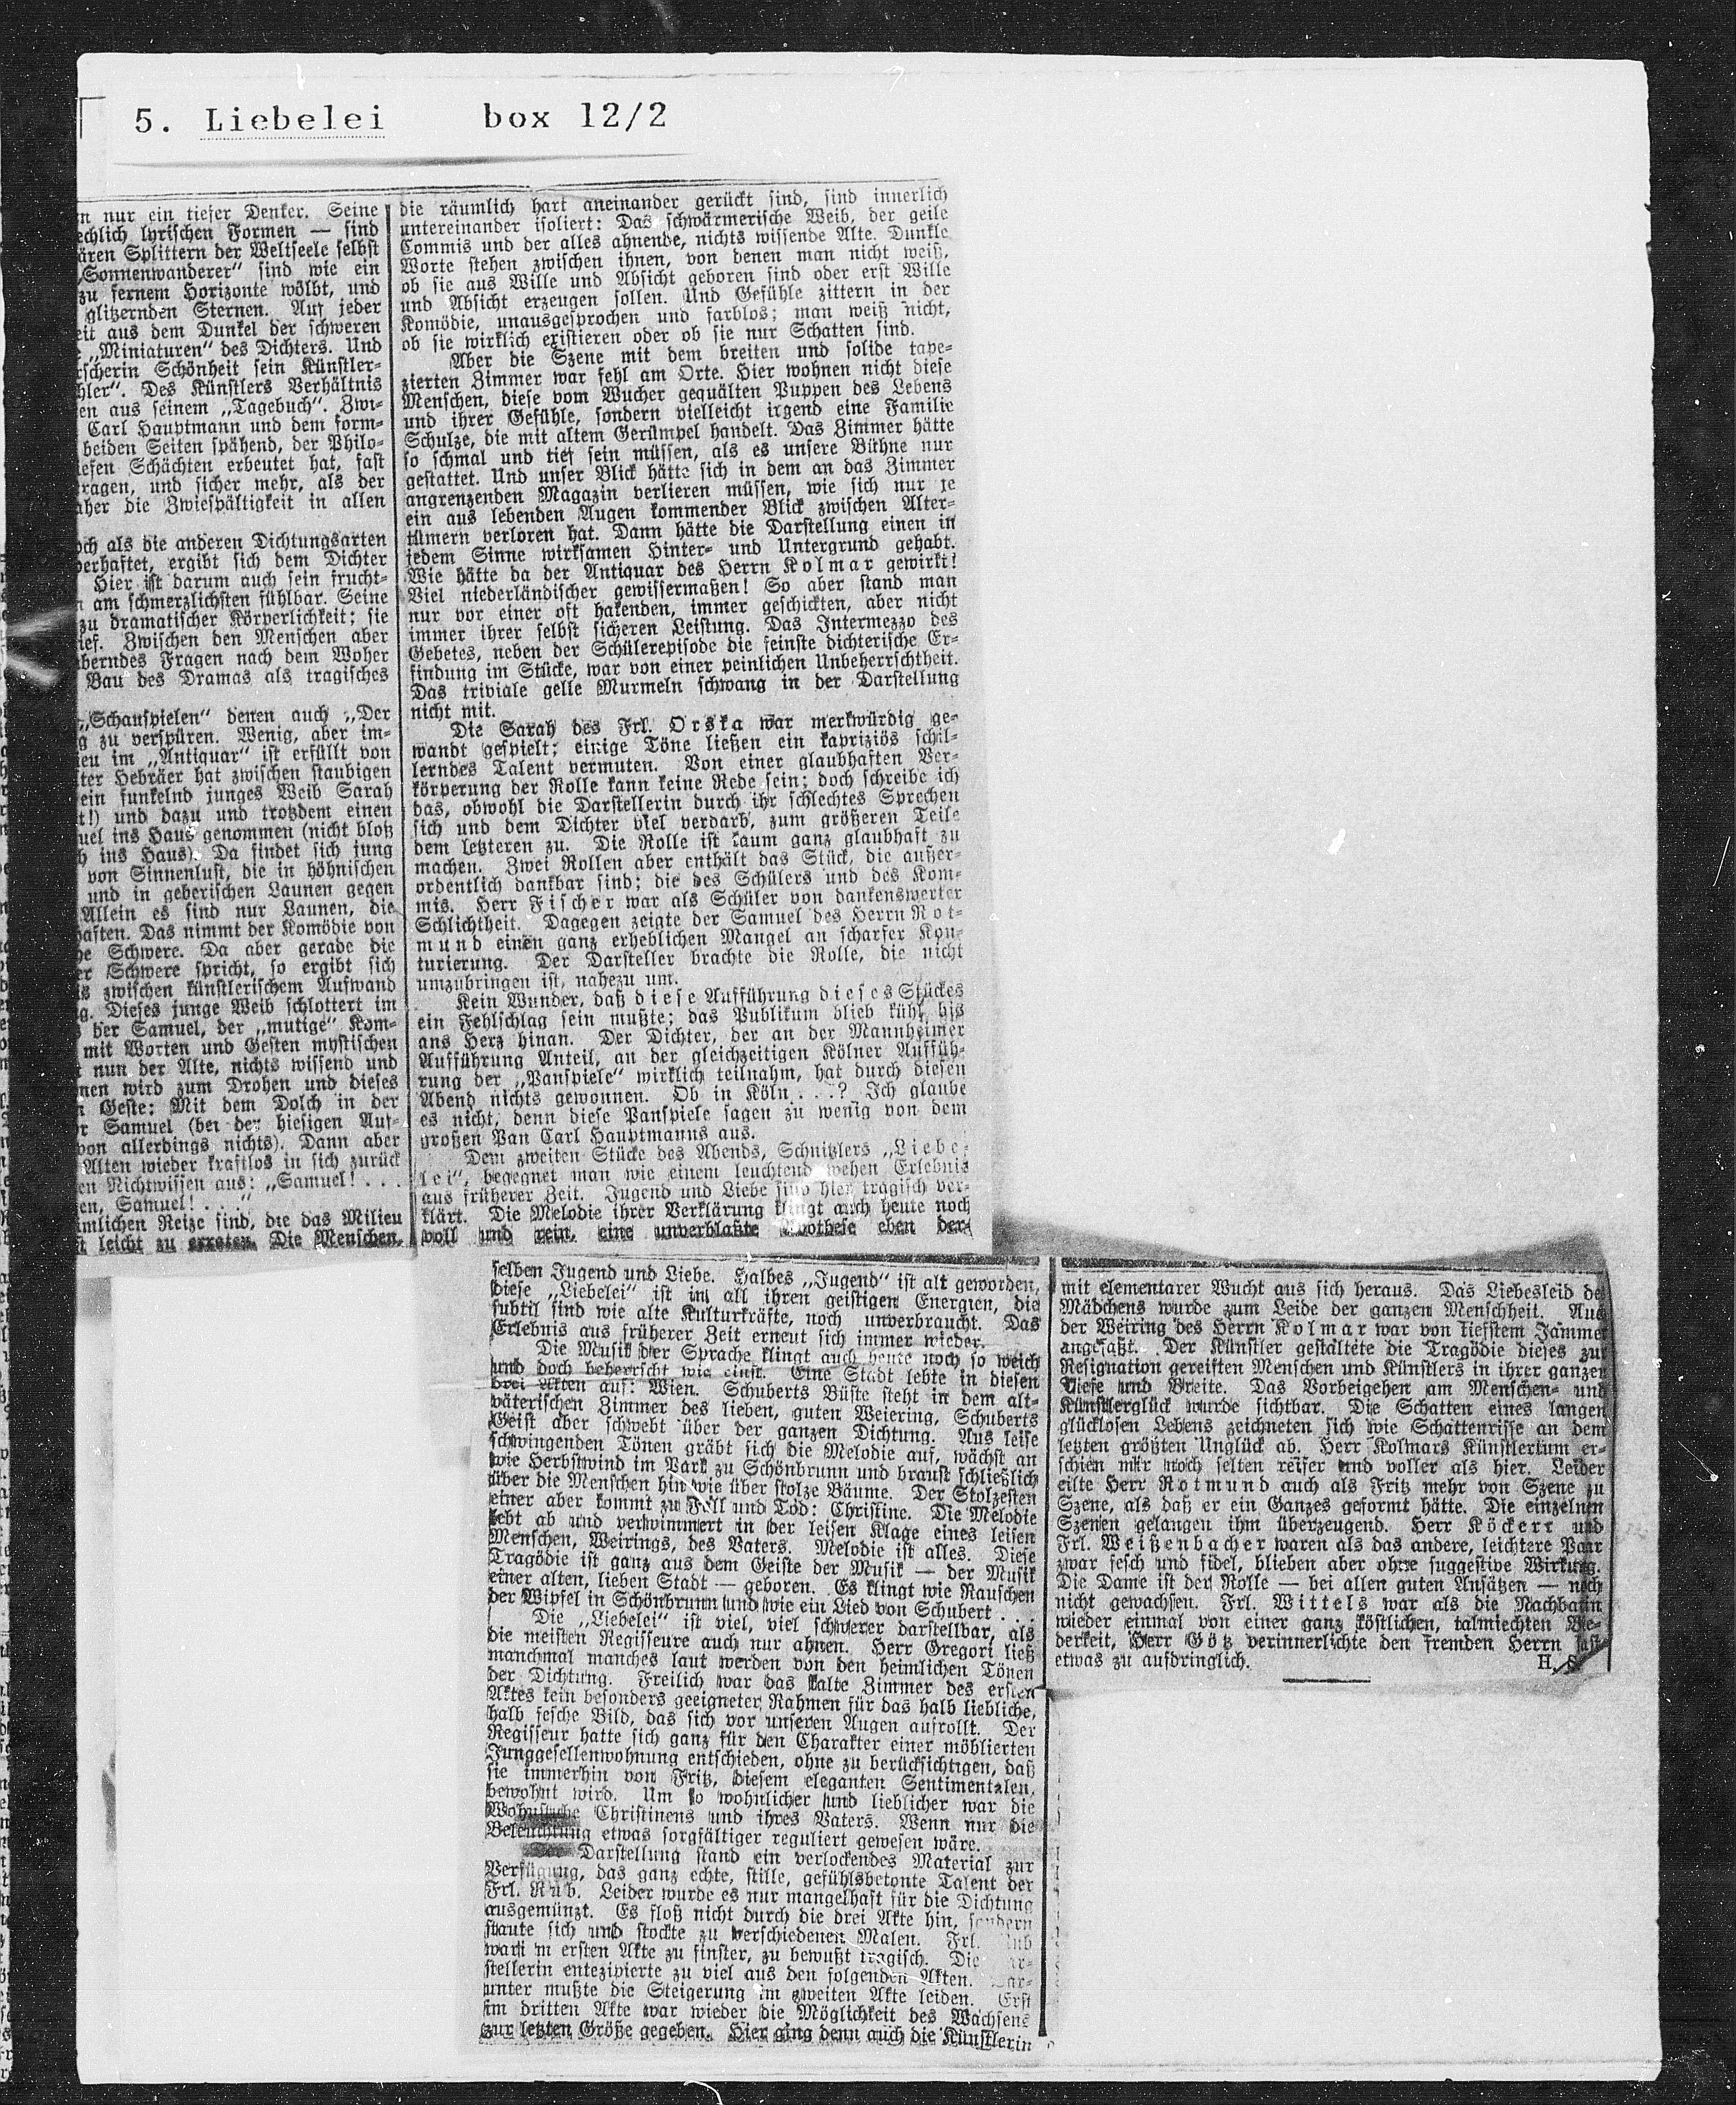 5. Liebelei box 12/2
n nur ein tiefer Denker. Seine
echlich lyrischen Formen — sind
ären Splittern der Weltseele selbst
„Sonnenwanderer“ sind wie ein
zu fernem Horizonte wölbt, und
glitzernden Sternen. Auf jeder
eit aus dem Dunkel der schweren
„Miniaturen“ des Dichters. Und
rscherin Schönheit sein Künstler-
hler“. Des Künstlers Verhältnis
en aus seinem „Tagebuch“. Zwi-
Carl Hauptmann und dem form-
beiden Seiten spähend, der Philo-
iefen Schächten erbeutet hat, fast
ragen, und sicher mehr, als der
aher die Zwiespältigkeit in allen
och als die anderen Dichtungsarten
verhaftet, ergibt sich dem Dichter
Hier ist darum auch sein frucht-
n am schmerzlichsten fühlbar. Seine
zu dramatischer Körperlichkeit; sie
ief. Zwischen den Menschen aber
berndes Fragen nach dem Woher
Bau des Dramas als tragisches
„Schauspielen“ denen auch „Der
g zu verspüren. Wenig, aber im-
eu im „Antiquar“ ist erfüllt von
lter Hebräer hat zwischen staubigen
ein funkelnd junges Weib Sarah
t!) und dazu und trotzdem einen
uel ins Haus genommen (nicht bloß
h ins Haus). Da findet sich jung
von Sinnenlust, die in höhnischen
und in geberischen Launen gegen
Allein es sind nur Launen, die
haften. Das nimmt der Komödie von
he Schwere. Da aber gerade die
er Schwere spricht, so ergibt sich
is zwischen künstlerischem Aufwand
g. Dieses junge Weib schlottert im
der Samuel, der „mutige“ Kom-
mit Worten und Gesten mystischen
t nun der Alte, nichts wissend und
nen wird zum Drohen und dieses
n Geste: Mit dem Dolch in der
r Samuel (bei der hiesigen Auf-
von allerdings nichts). Dann aber
Alten wieder kraftlos in sich zurück
en Nichtwissen aus: „Samuel! . . .
en, Samuel! . . .“
mlichen Reize sind, die das Milieu
t leicht zu erraten. Die Menschen,
die räumlich hart aneinander gerückt sind, sind innerlich
untereinander isoliert: Das schwärmerische Weib, der geile
Commis und der alles ahnende, nichts wissende Alte. Dunkle
Worte stehen zwischen ihnen, von denen man nicht weiß,
ob sie aus Wille und Absicht geboren sind oder erst Wille
und Absicht erzeugen sollen. Und Gefühle zittern in der
Komödie, unausgesprochen und farblos; man weiß nicht,
ob sie wirklich existieren oder ob sie nur Schatten sind.
Aber die Szene mit dem breiten und solide tape-
zierten Zimmer war fehl am Orte. Hier wohnen nicht diese
Menschen, diese vom Wucher gequälten Puppen des Lebens
und ihrer Gefühle, sondern vielleicht irgend eine Familie
Schulze, die mit altem Gerümpel handelt. Das Zimmer hätte
so schmal und tief sein müssen, als es unsere Bühne nur
gestattet. Und unser Blick hätte sich in dem an das Zimmer
angrenzenden Magazin verlieren müssen, wie sich nur je
ein aus lebenden Augen kommender Blick zwischen Alter-
tümern verloren hat. Dann hätte die Darstellung einen in
jedem Sinne wirksamen Hinter- und Untergrund gehabt.
Wie hätte da der Antiquar des Herrn Kolmar gewirkt!
Viel niederländischer gewissermaßen! So aber stand man
nur vor einer oft hakenden, immer geschickten, aber nicht
immer ihrer selbst sicheren Leistung. Das Intermezzo des
Gebetes, neben der Schülerepisode die feinste dichterische Er-
findung im Stücke, war von einer peinlichen Unbeherrschtheit.
Das triviale gelle Murmeln schwang in der Darstellung
nicht mit.
Die Sarah des Frl. Orska war merkwürdig ge-
wandt gespielt; einige Töne ließen ein kapriziös schil-
lerndes Talent vermuten. Von einer glaubhaften Ver-
körperung der Rolle kann keine Rede sein; doch schreibe ich
das, obwohl die Darstellerin durch ihr schlechtes Sprechen
sich und dem Dichter viel verdarb, zum größeren Teile
dem letzteren zu. Die Rolle ist kaum ganz glaubhaft zu
machen. Zwei Rollen aber enthält das Stück, die außer-
ordentlich dankbar sind; die des Schülers und des Kom-
mis. Herr Fischer war als Schüler von dankenswerter
Schlichtheit. Dagegen zeigte der Samuel des Herrn Rot-
mund einen ganz erheblichen Mangel an scharfer Kon-
turierung. Der Darsteller brachte die Rolle, die nicht
umzubringen ist, nahezu um.
Kein Wunder, daß diese Aufführung dieses Stückes
ein Fehlschlag sein mußte; das Publikum blieb kühl bis
ans Herz hinan. Der Dichter, der an der Mannheimer
Aufführung Anteil, an der gleichzeitigen Kölner Auffüh-
rung der „Panspiele“ wirklich teilnahm, hat durch diesen
Abend nichts gewonnen. Ob in Köln . . .? Ich glaube
es nicht, denn diese Panspiele sagen zu wenig von dem
großen Pan Carl Hauptmanns aus.
Dem zweiten Stücke des Abends, Schnitzlers „Liebe-
lei“, begegnet man wie einem leuchtend wehen Erlebnis
aus früherer Zeit. Jugend und Liebe sind hier tragisch ver-
klärt. Die Melodie ihrer Verklärung klingt auch heute noch
voll und rein, eine unverblaßte Apothese eben der-
selben Jugend und Liebe. Halbes „Jugend“ ist alt geworden,
diese „Liebelei“ ist in all ihren geistigen Energien, die
subtil sind wie alte Kulturkräfte, noch unverbraucht. Das
Erlebnis aus früherer Zeit erneut sich immer wieder.
Die Musik der Sprache klingt auch heute noch so weich
und doch beherrscht wie einst. Eine Stadt lebte in diesen
drei Akten auf: Wien. Schuberts Büste steht in dem alt-
väterischen Zimmer des lieben, guten Weiering, Schuberts
Geist aber schwebt über der ganzen Dichtung. Aus leise
schwingenden Tönen gräbt sich die Melodie auf, wächst an
wie Herbstwind im Park zu Schönbrunn und braust schließlich
über die Menschen hin wie über stolze Bäume. Der Stolzesten
einer aber kommt zu Fall und Tod: Christine. Die Melodie
ebt ab und verwimmert in der leisen Klage eines leisen
Menschen, Weirings, des Vaters. Melodie ist alles. Diese
Tragödie ist ganz aus dem Geiste der Musik — der Musik
einer alten, lieben Stadt — geboren. Es klingt wie Rauschen
der Wipfel in Schönbrunn und wie ein Lied von Schubert . . .
Die „Liebelei“ ist viel, viel schwerer darstellbar, als
die meisten Regisseure auch nur ahnen. Herr Gregori ließ
manchmal manches laut werden von den heimlichen Tönen
der Dichtung. Freilich war das kalte Zimmer des ersten
Aktes kein besonders geeigneter Rahmen für das halb liebliche,
halb fesche Bild, das sich vor unseren Augen aufrollt. Der
Regisseur hatte sich ganz für den Charakter einer möblierten
Junggesellenwohnung entschieden, ohne zu berücksichtigen, daß
sie immerhin von Fritz, diesem eleganten Sentimentalen,
bewohnt wird. Um so wohnlicher und lieblicher war die
Christinens und ihres Vaters. Wenn nur die
Beleuchtung etwas sorgfältiger reguliert gewesen wäre.
Der Darstellung stand ein verlockendes Material zur
Verfügung, das ganz echte, stille, gefühlsbetonte Talent der
Frl. Rub. Leider wurde es nur mangelhaft für die Dichtung
ausgemünzt. Es floß nicht durch die drei Akte hin, sondern
staute sich und stockte zu verschiedenen Malen. Frl. Rub
war im ersten Akte zu finster, zu bewußt tragisch. Die Dar-
stellerin entezipierte zu viel aus den folgenden Akten. Dar-
unter mußte die Steigerung im zweiten Akte leiden. Erst
im dritten Akte war wieder die Möglichkeit des Wachsens
zur letzten Größe gegeben. Hier ging denn auch die Künstlerin
mit elementarer Wucht aus sich heraus. Das Liebesleid des
Mädchens wurde zum Leide der ganzen Menschheit. Auch
der Weiring des Herrn Kolmar war von tiefstem Jammer
angefaßt. Der Künstler gestaltete die Tragödie dieses zur
Resignation gereiften Menschen und Künstlers in ihrer ganzen
Tiefe und Breite. Das Vorbeigehen am Menschen- und
Künstlerglück wurde sichtbar. Die Schatten eines langen
glücklosen Lebens zeichneten sich wie Schattenrisse an dem
letzten größten Unglück ab. Herr Kolmars Künstlertum er-
schien mir noch selten reifer und voller als hier. Leider
eilte Herr Rotmund auch als Fritz mehr von Szene zu
Szene, als daß er ein Ganzes geformt hätte. Die einzelnen
Szenen gelangen ihm überzeugend. Herr Köckert und
Frl. Weißenbacher waren als das andere, leichtere Paar
zwar fesch und fidel, blieben aber ohne suggestive Wirkung.
Die Dame ist der Rolle — bei allen guten Ansätzen — noch
nicht gewachsen. Frl. Wittels war als die Nachbarin
wieder einmal von einer ganz köstlichen, talmiechten Bie-
derkeit, Herr Götz verinnerlichte den fremden Herrn fast
etwas zu aufdringlich.
H. S.